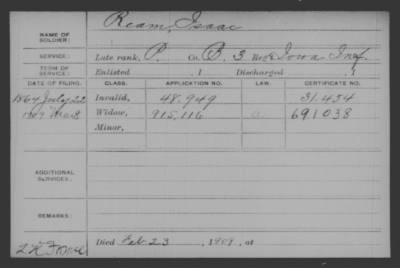 NAME OF SOLDIER: Ream, Isaac
SERVICE: Late rank, P. Co. B, 3 Reg't Iowa Inf
TERM OF SERVICE: Enlisted , 1 Discharged , 1
DATE OF FILING. CLASS. APPLICATION NO. LAW. CERTIFICATE NO.
1864 July 22 Invalid, 48.949 31.454
1909 Mar 8 Widow, 915,116 691038
Minor,
ADDITIONAL SERVICES:
REMARKS:
Died Feb 23, 1909, at